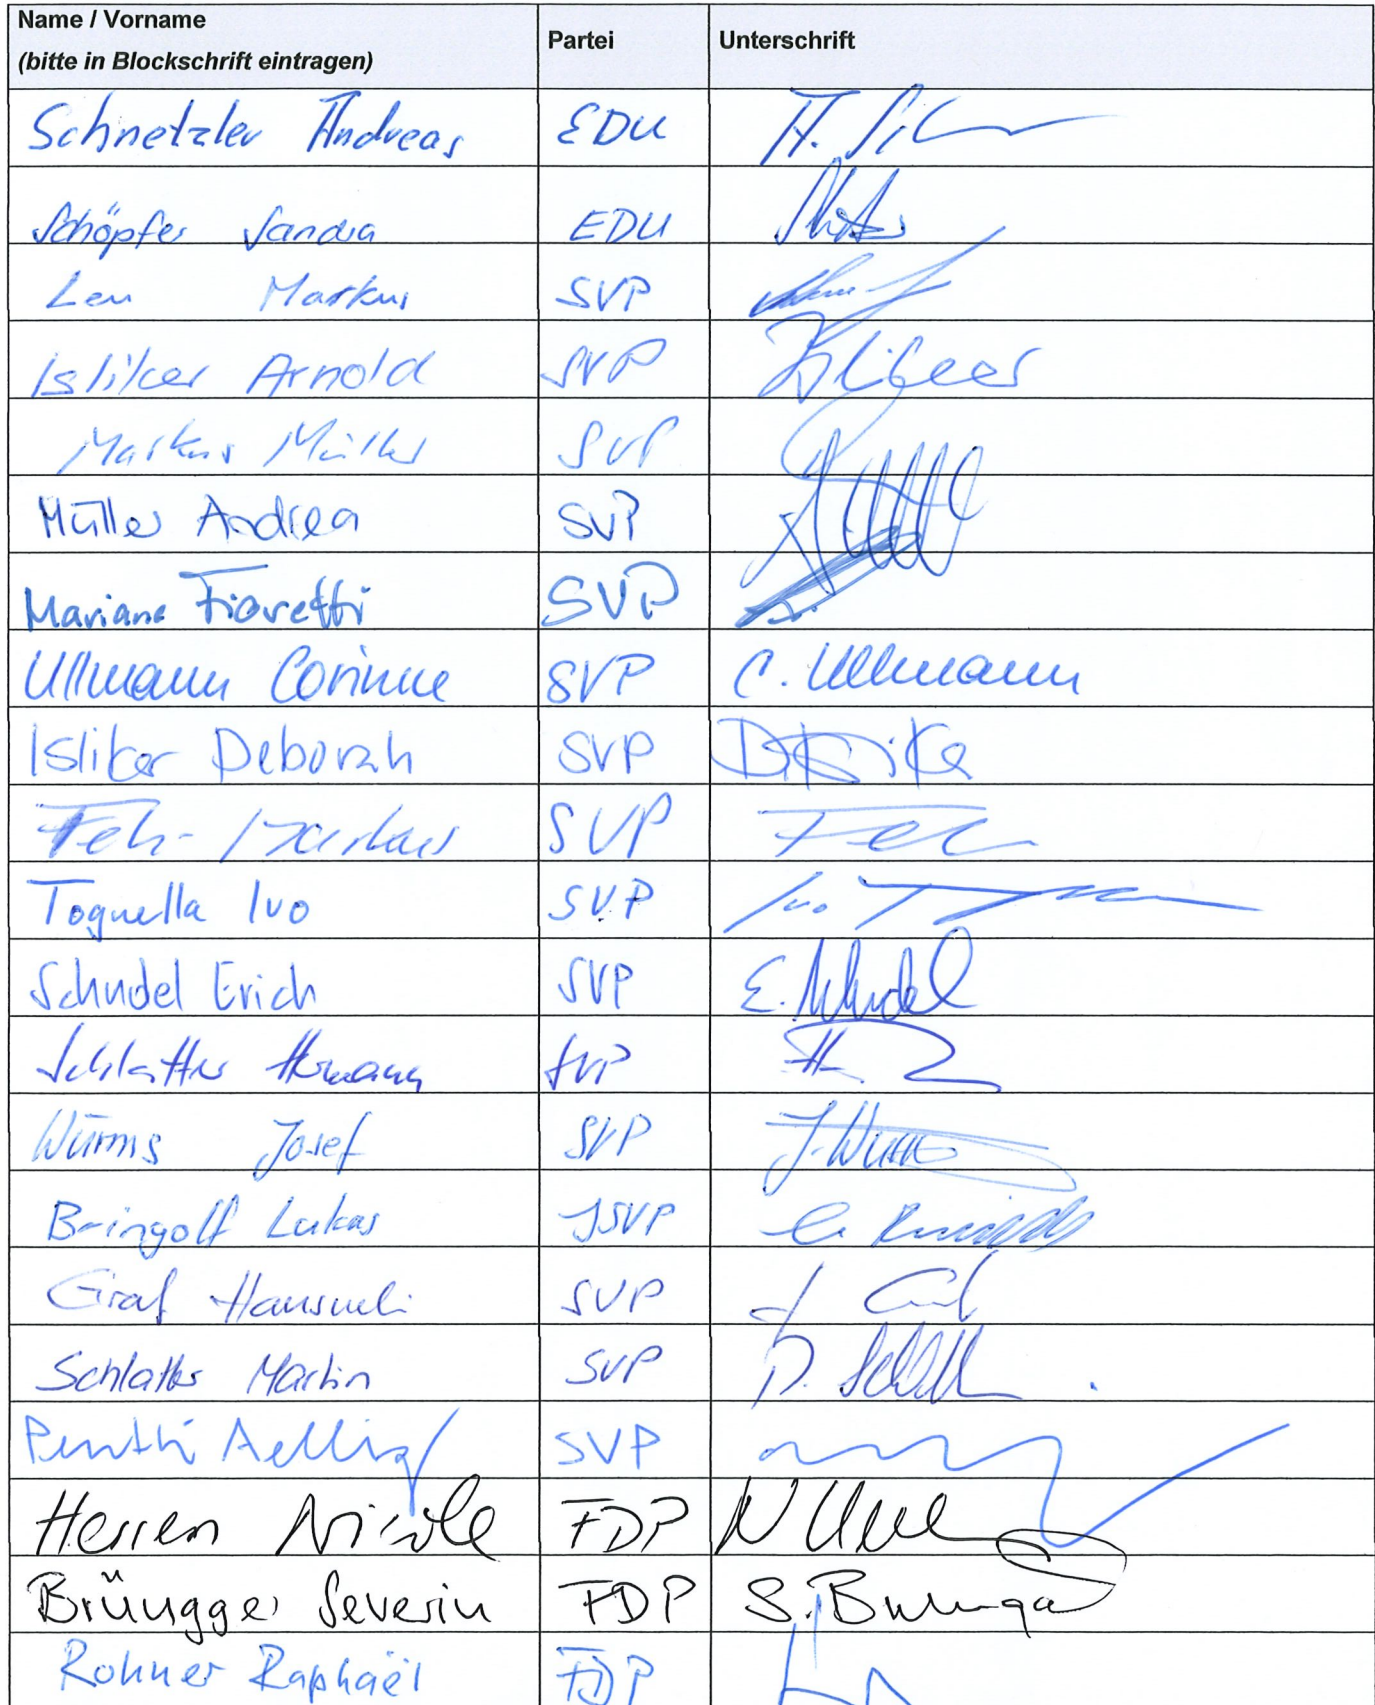 Name / Vorname
(bitte in Blockschrift eintragen) Partei Unterschrift
Schnetzler Andreas EDU
Schöpfer Sandra EDU
Leu Markus SVP
Isliker Arnold SVP
Markus Müller SVP
Müller Andrea SVP
Mariana Fioretti SVP
Ullmann Corinne SVP C. Ullmann
Isliker Deborah SVP
Feh- Markus SVP
Tognella Ivo SVP Ivo
Schudel Erich SVP E. Schudel
Schlatter Hermann SVP
Würms Josef SVP
Bringolf Lukas JSVP
Graf Hansueli SVP
Schlatter Martin SVP
Pentti Aellig SVP
Herren Nicole FDP
Brüngger Severin FDP
Rohner Raphaël FDP